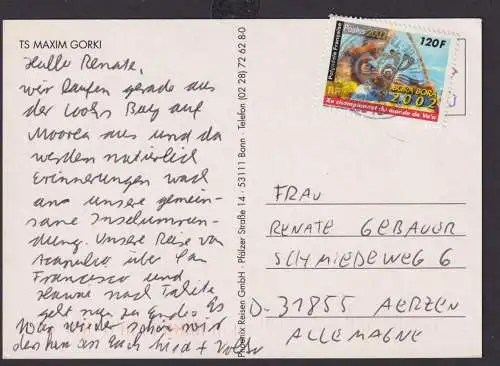 TS MAXIM GORKI
Hallo Renate,
wir laufen gerade aus
der Cooks Bay auf
Moorea aus und da
werden natürlich
Erinnerungen wach
ans unsere gemein-
same Inselumrun-
dung. Unsere Reise von
Acapulco über San
Francisco und
Hawaii nach Tahiti
geht nun zu Ende. Es
war wieder schön
Phoenix Reisen GmbH · Pfälzer Straße 14 · 53111 Bonn · Telefon (02 28) 72 62 8-0
Polynésie Française
Postes 2002
120F
BORA BORA
2002
Xe championnat du monde de Va'a
FRAU
RENATE GEBAUER
SCHMIEDEWEG 6
D-31855 AERZEN
ALLEMAGNE